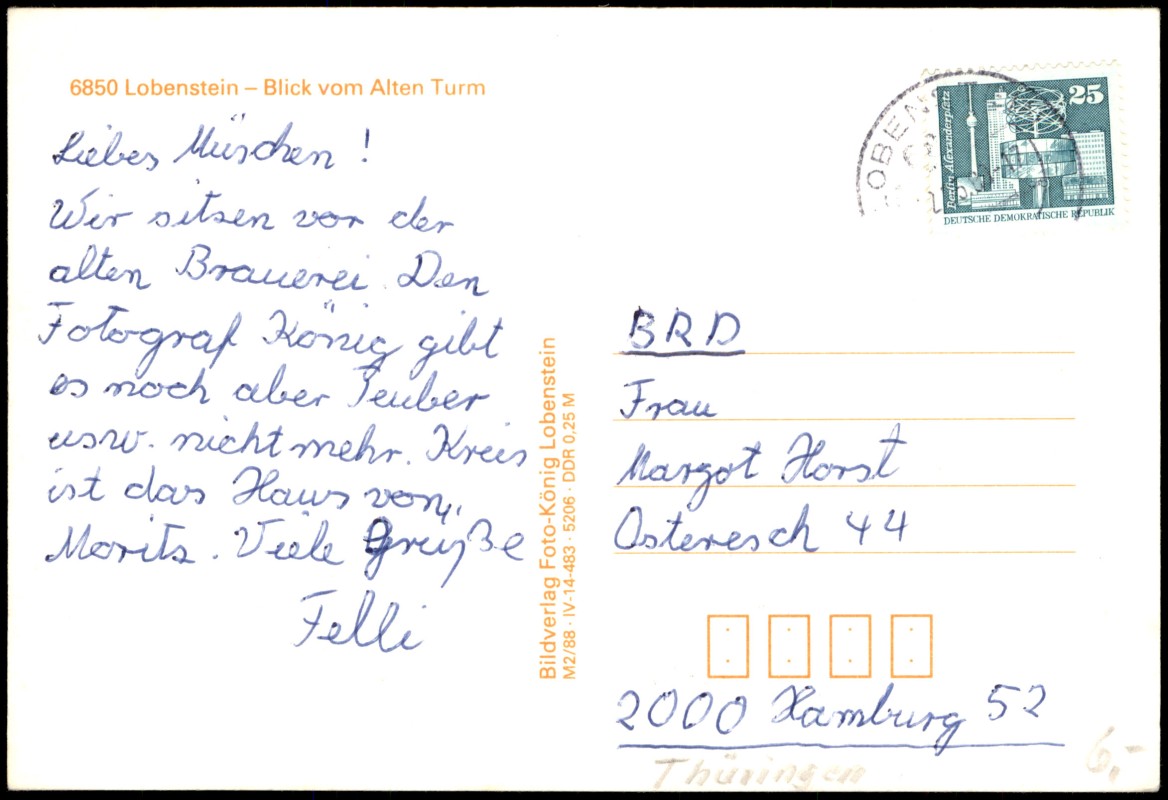 6850 Lobenstein – Blick vom Alten Turm
Liebes Müschen!
Wir sitzen vor der
alten Brauerei. Den
Fotograf König gibt
es noch aber Teuber
usw. nicht mehr. Kreis
ist das Haus von
Moritz. Viele Grüße
Felli
Bildverlag Foto-König Lobenstein
M2/88 · IV-14-483 · 5206 · DDR 0,25 M
25
Berlin-Alexanderplatz
DEUTSCHE DEMOKRATISCHE REPUBLIK
BRD
Frau
Margot Horst
Osteresch 44
2000 Hamburg 52
Thüringen
6,-